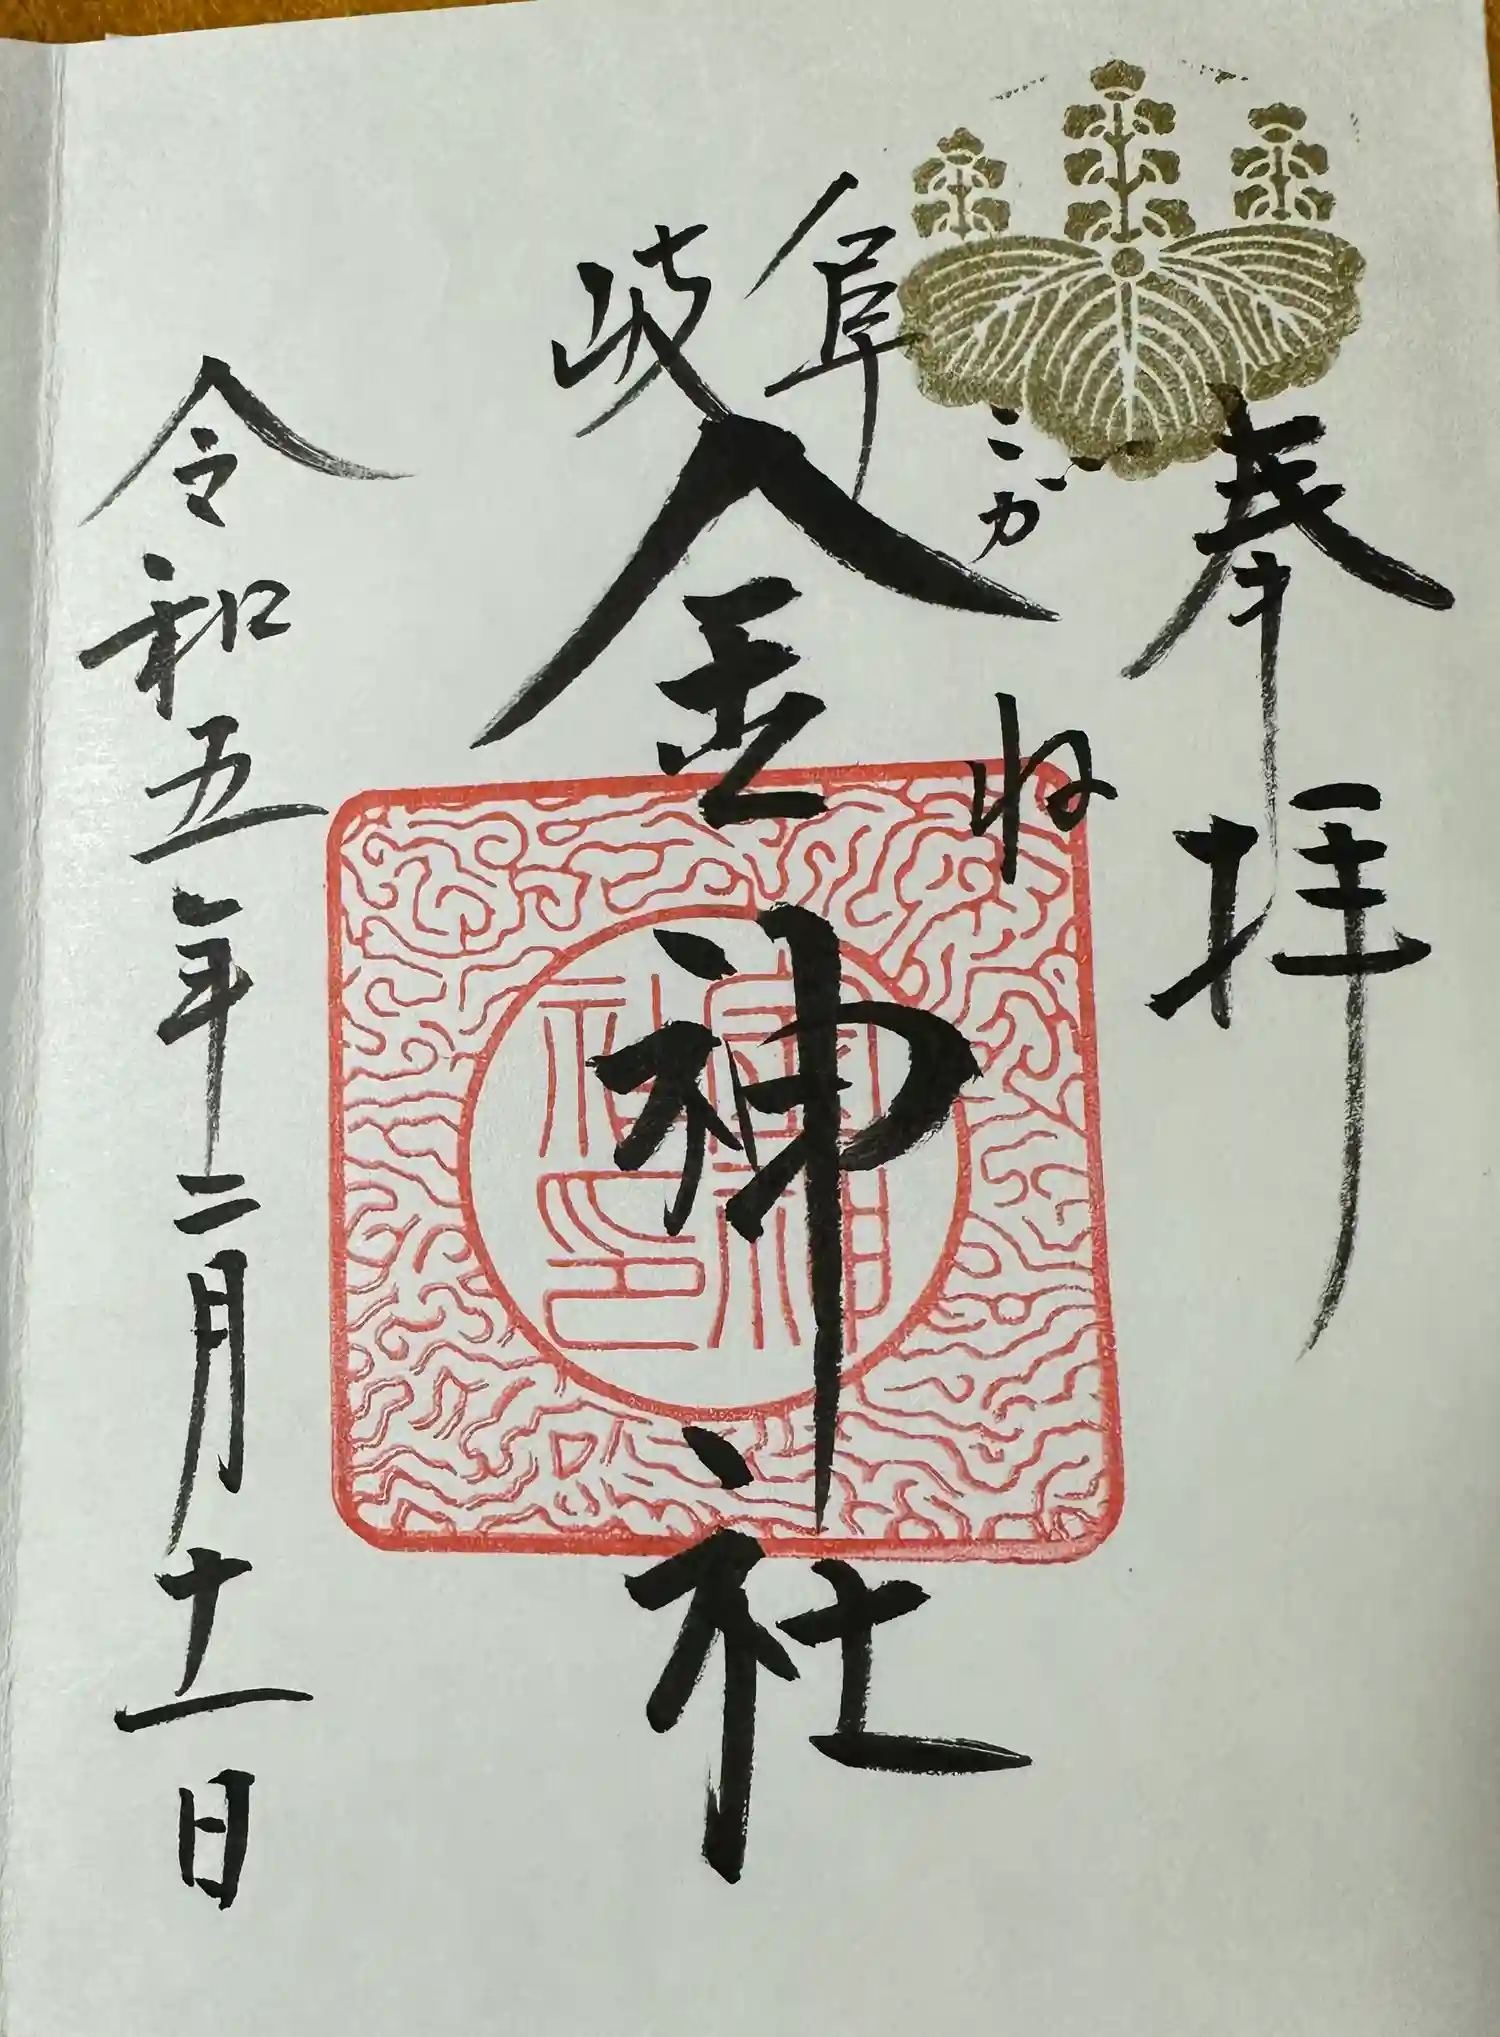 奉拝
こがね
岐阜
金神社
令和五年二月十一日